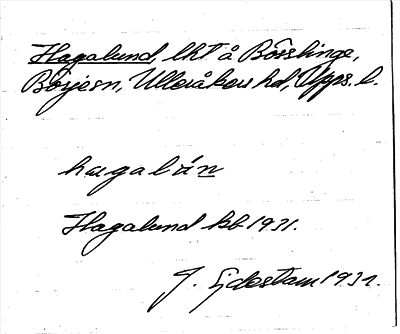 Hagalund, lht å Bösslinge,
Börje sn, Ulleråkers hd, Upps. l.
hagalún
Hagalund kb 1931.
J. Sjdestam 1931.